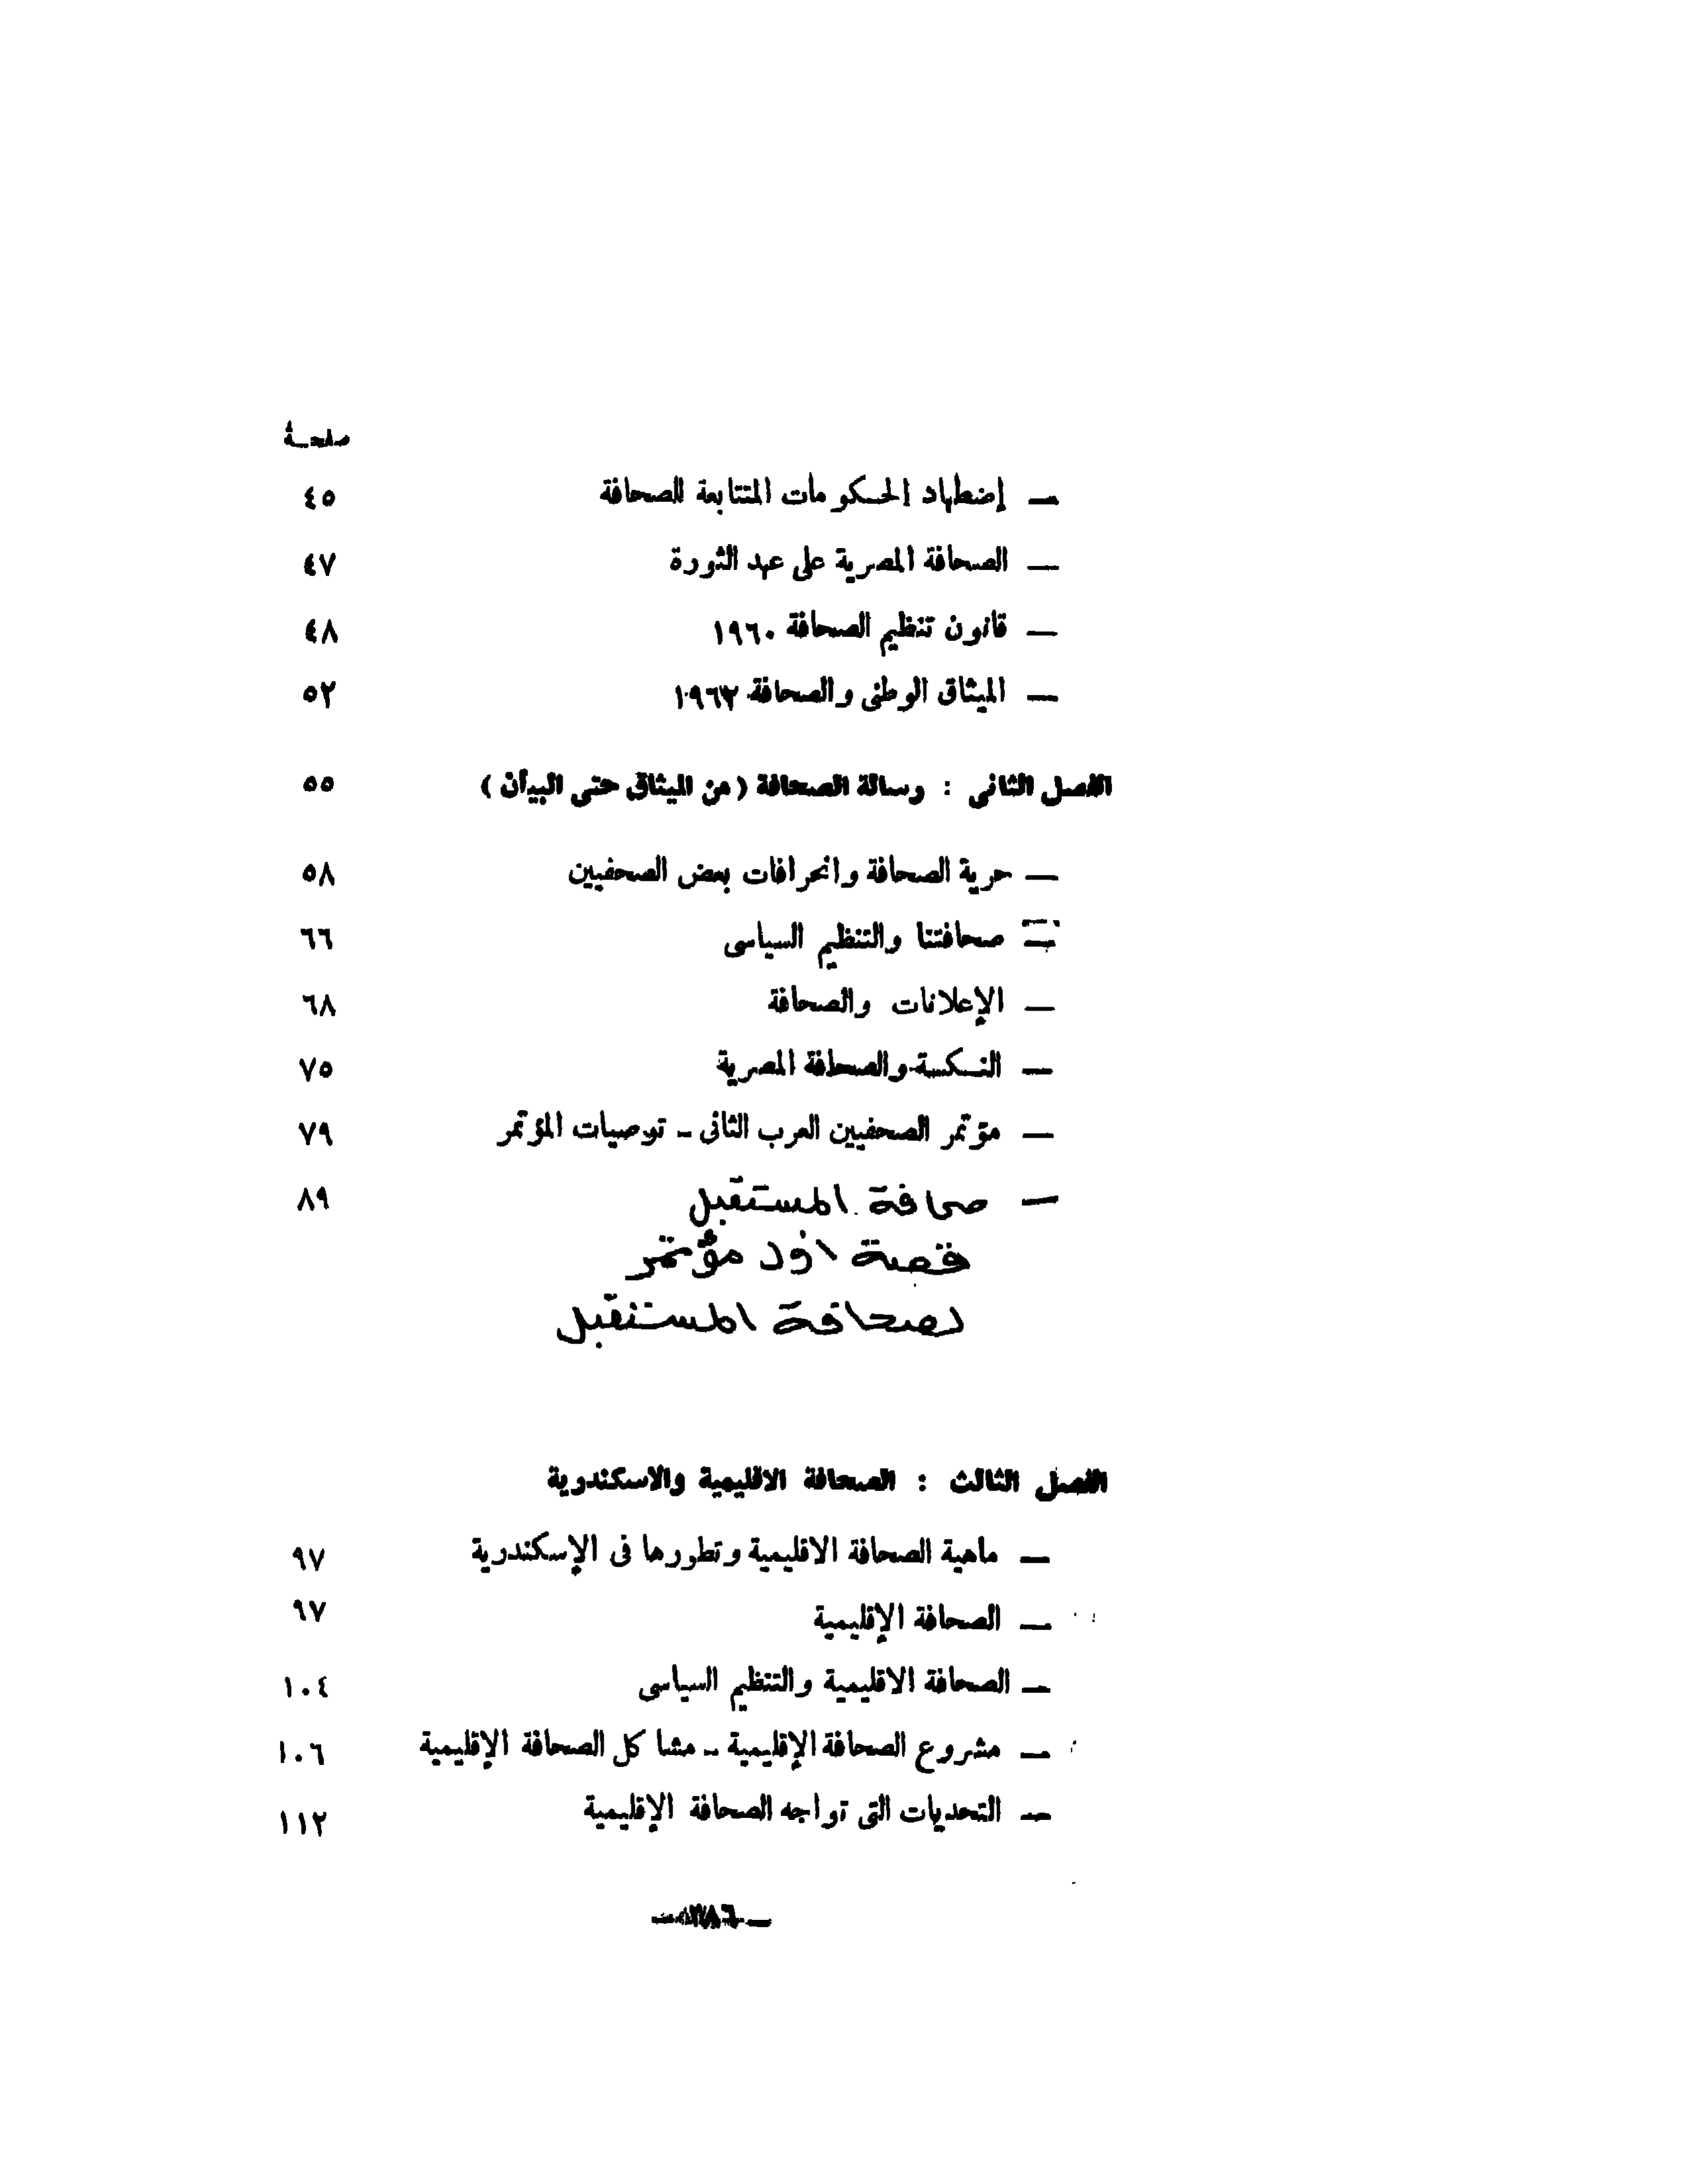 صفحة
— إضطهاد الحكومات المتتابعة للصحافة ٤٥
— الصحافة المصرية على عهد الثورة ٤٧
— قانون تنظيم الصحافة ١٩٦٠ ٤٨
— الميثاق الوطنى والصحافة ١٩٦٢ ٥٢
الفصل الثانى : رسالة الصحافة ( من الميثاق حتى البيان ) ٥٥
— حرية الصحافة وانحرافات بعض الصحفيين ٥٨
— صحافتنا والتنظيم السياسى ٦٦
— الإعلانات والصحافة ٦٨
— النكسة والصحافة المصرية ٧٥
— مؤتمر الصحفيين العرب الثانى - توصيات المؤتمر ٧٩
— صحافة المستقبل ٨٩
قصة اول مؤتمر
لصحافة المستقبل
الفصل الثالث : الصحافة الاقليمية والاسكندرية
— ماهية الصحافة الاقليمية وتطورها فى الإسكندرية ٩٧
— الصحافة الإقليمية ٩٧
— الصحافة الاقليمية والتنظيم السياسى ١٠٤
— مشروع الصحافة الإقليمية - مشاكل الصحافة الإقليمية ١٠٦
— التحديات التى تواجه الصحافة الإقليمية ١١٢
— ٣٨٦ —